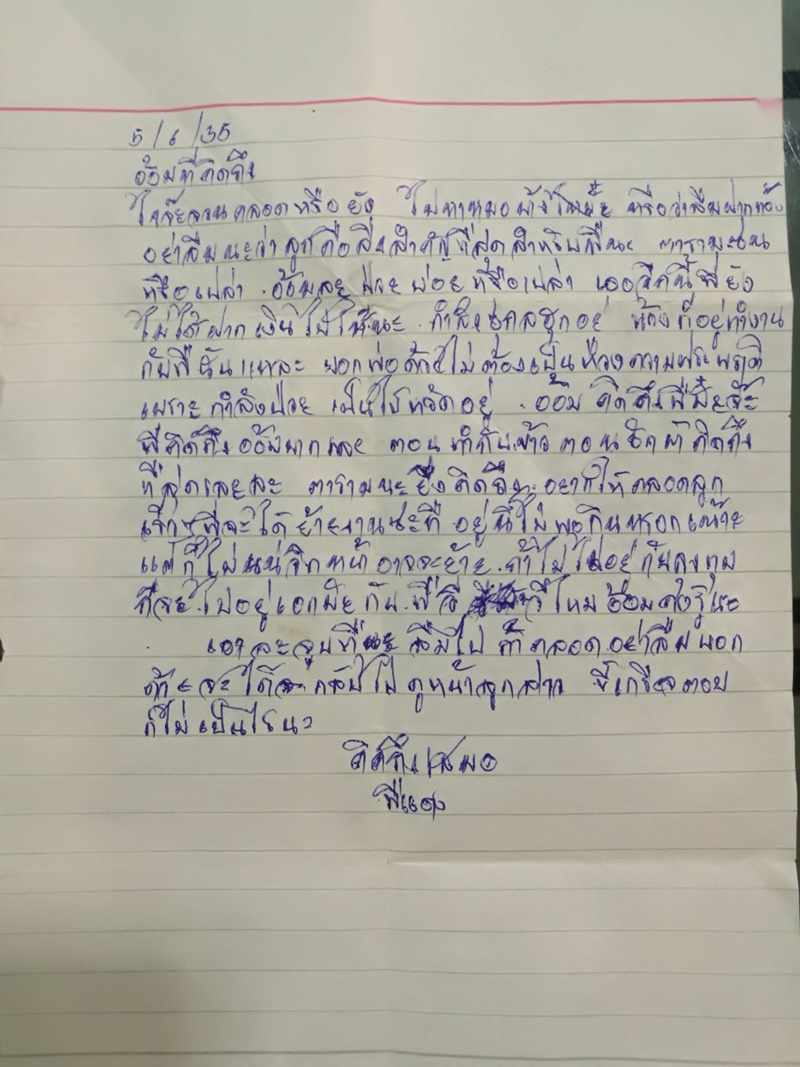 5/6/35
อ้อมที่คิดถึง
ใกล้จะคลอดหรือยัง ไปหาหมอบ้างไหม หรือว่าลืมฝากท้อง
อย่าลืมนะว่าลูกคือสิ่งสำคัญที่สุดสำหรับพี่นะ
หรือเปล่า อ้อมละป่วยบ่อยหรือเปล่า เออวีคนี้พี่ยัง
ไม่ได้ฝากเงินไปให้นะ กำลังอยู่ น้องก็อยู่ทำงาน
กับพี่นั่นแหละ บอกพ่อด้วยไม่ต้องเป็นห่วงความประพฤติ
เพราะกำลังป่วย เป็นไข้หวัดอยู่ อ้อมคิดถึงพี่มั๊ยจ๊ะ
พี่คิดถึงอ้อมมากเลย ตอนทำกับข้าวตอนซักผ้าคิดถึง
ที่สุดเลยละ นะยิ่งคิดถึง อยากให้คลอดลูก
เร็วๆพี่จะได้ย้ายงานซะที อยู่นี่ไม่พอกินหรอก
แต่ก็ไม่แน่อีกหน้าอาจจะย้าย ถ้าไม่ไปอยู่กับลุง
ก็จะไปอยู่ กัน พี่ ไหมอ้อมคงรู้นะ
เอาละจูบทีนะ ลืมไป ถ้าคลอดอย่าลืมบอก
ด้วยจะได้กลับไปดูหน้าลูกสาว ขี้เกียจตอบ
ก็ไม่เป็นไรนะ
คิดถึงเสมอ
พี่แดง